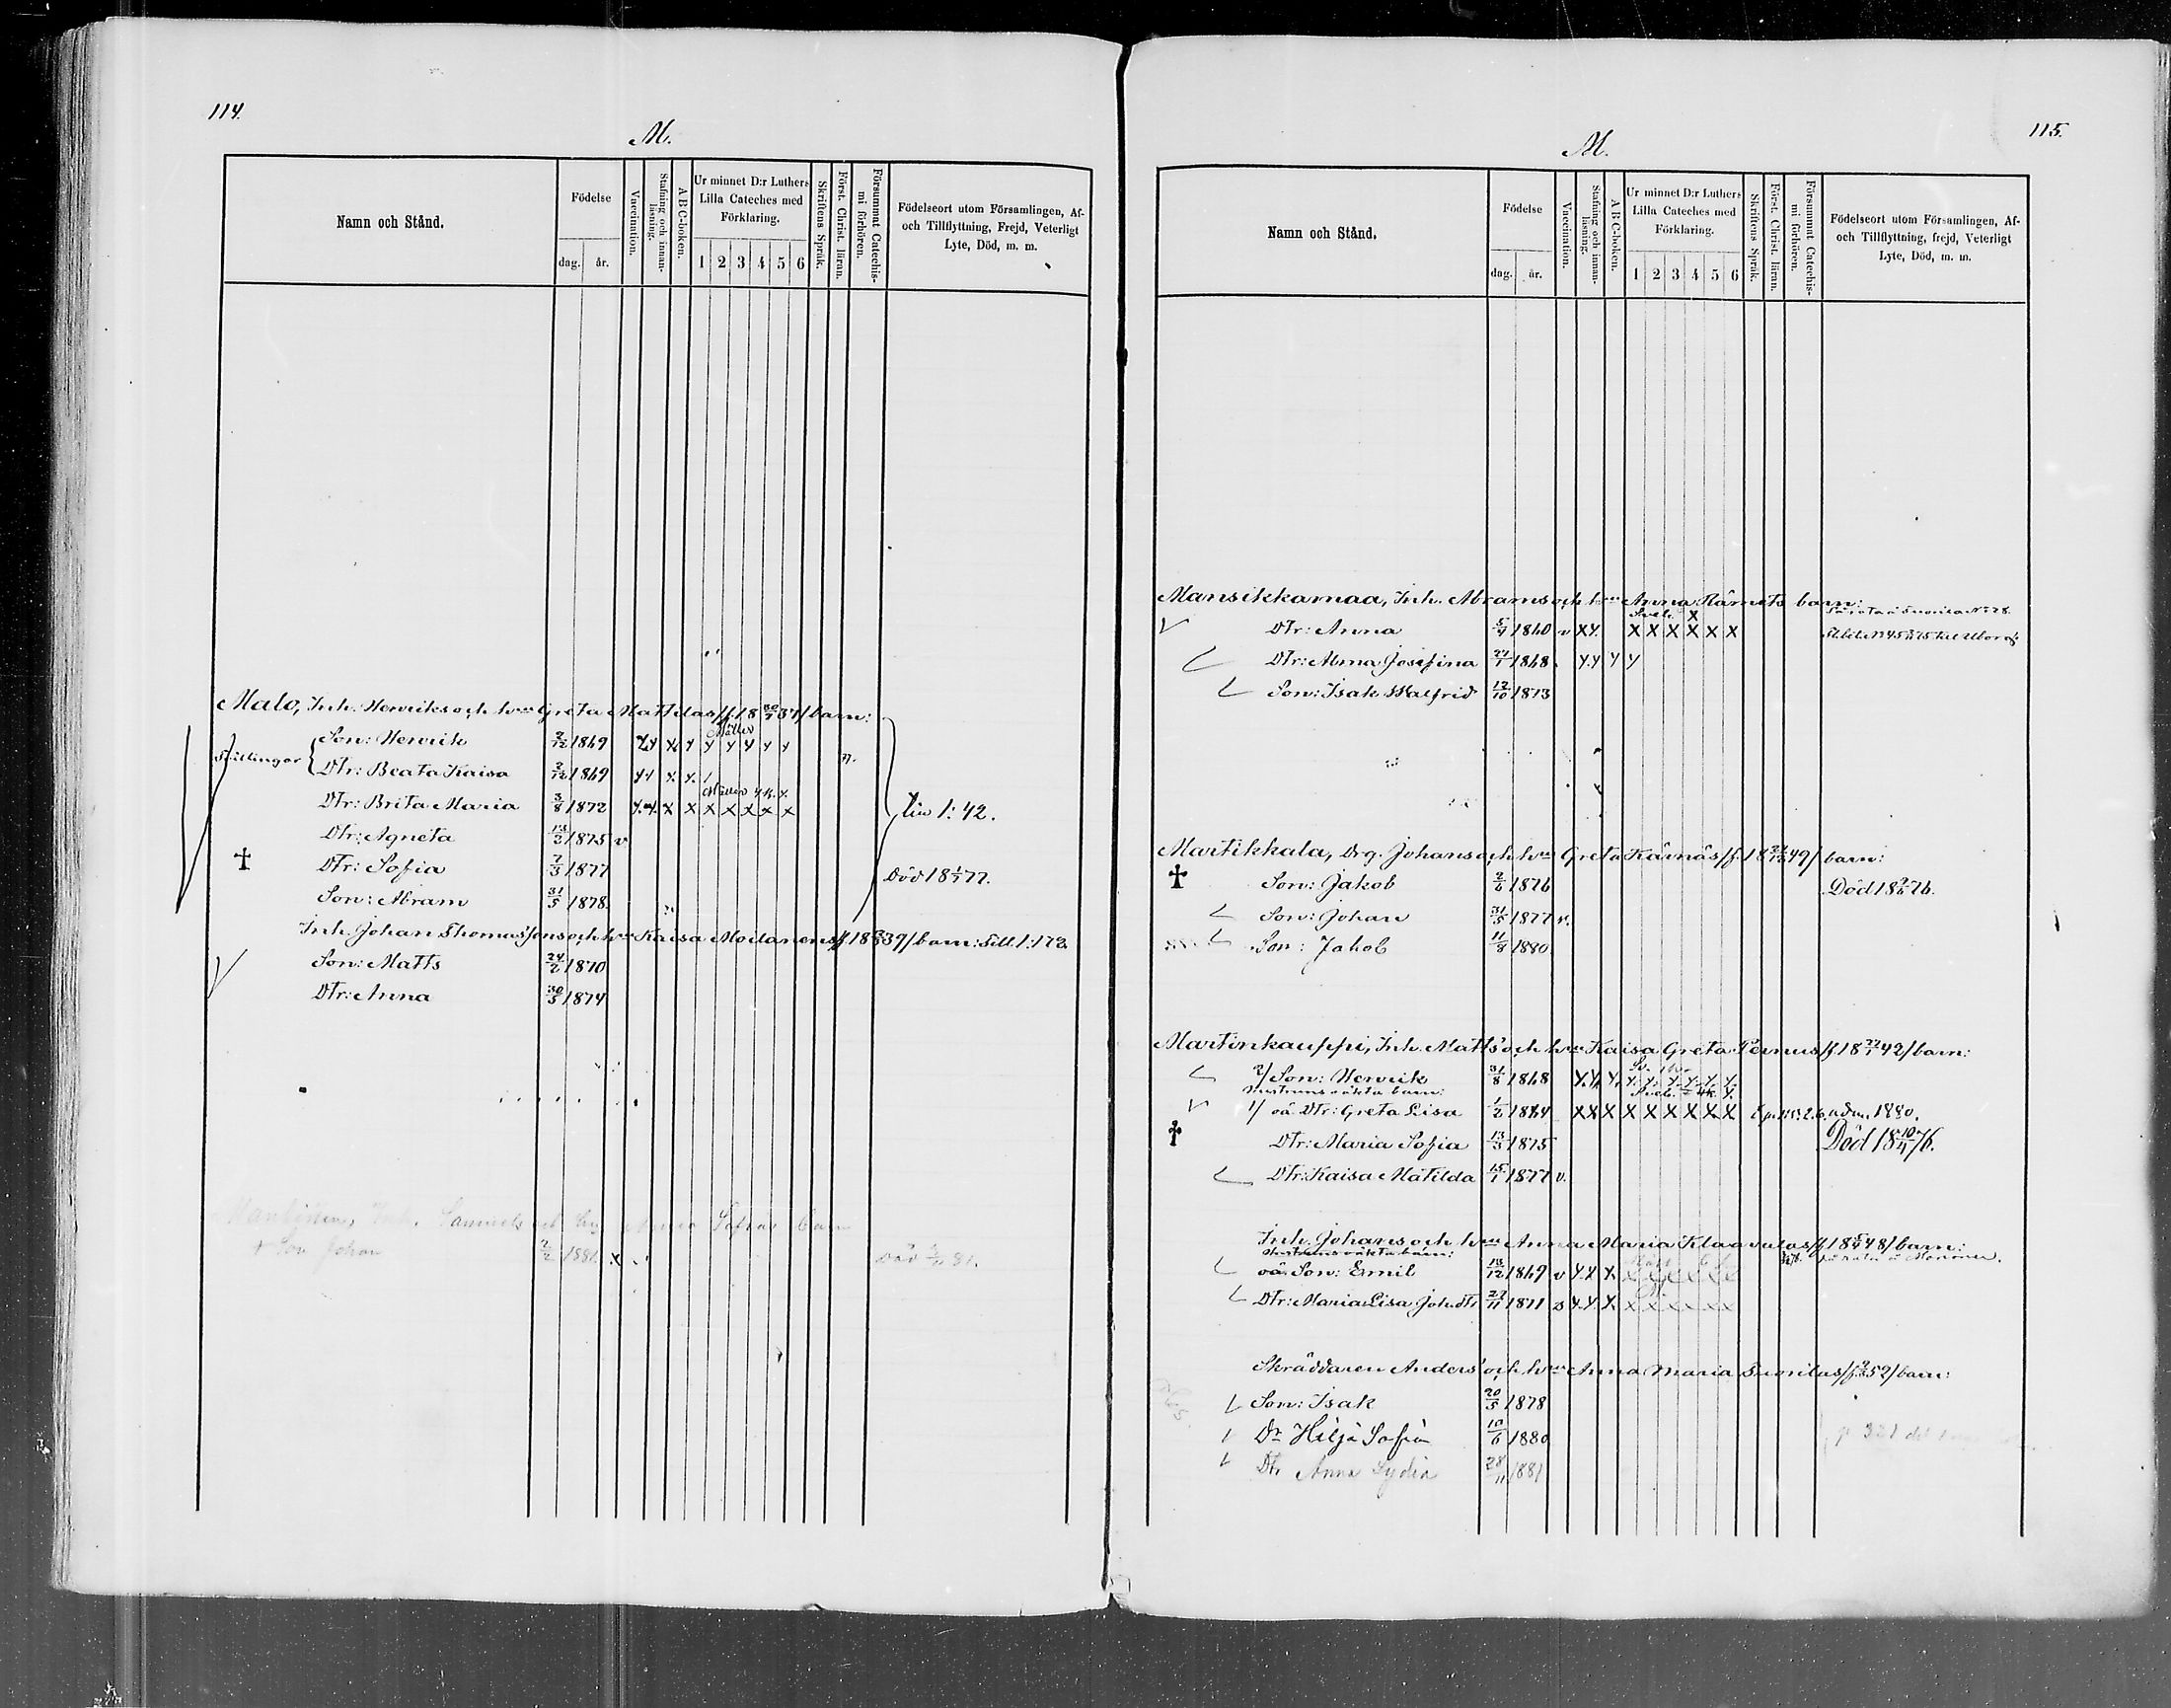 114.
M.
Namn och Stånd.
Födelse
dag. år.
Vaccination.
Stafning och innan-
läsning.
A B C-boken.
Ur minnet D:r Luthers
Lilla Cateches med
Förklaring.
1 2 3 4 5 6
Skriftens Språk.
Först. Christ. läran.
Försummat Catechis-
mi förhören.
Födelseort utom Församlingen, Af-
och Tillflyttning, Frejd, Veterligt
Lyte, Död, m. m.
Malo, Inh. Henriks och hru Greta Mattilas /f. 18 30/7 37/ barn:
Son: Henrik 2/12 1869
Tvillingar
Dtr: Beata Kaisa 2/12 1869
Dtr: Brita Maria 3/8 1872 x x x x x x x
1: 42.
Dtr: Agneta 13/2 1875 v
† Dtr: Sofia 7/3 1877 Död 18 77.
Son: Abram 31/5 1878.
Inh. Johan Thomas'sons och hru Kaisa Moilanens /f. 18 39/ barn: 1:172
Son: Matts 24/2 1870
Dtr: Anna 30/5 1874
Inh. Samuels och hru Sofias barn
† Son Johan 2/2 1881. x Död 81.
115.
M.
Namn och Stånd.
Födelse
dag. år.
Vaccination.
Stafning och innan-
läsning.
A B C-boken.
Ur minnet D:r Luthers
Lilla Cateches med
Förklaring.
1 2 3 4 5 6
Skriftens Språk.
Först. Christ. läran.
Försummat Catechis-
mi förhören.
Födelseort utom Församlingen, Af-
och Tillflyttning, frejd, Veterligt
Lyte, Död, m. m.
Mansikkamaa, Inh. Abrams och hru Anna Rämets barn:
Dtr: Anna 5/4 1860 v x x x x x x x x
Dtr: Alma Josefina 27/1 1868.
Son: Isak Walfrid 12/10 1873
Martikkala, Drg. Johans och hru Greta Kärnäs /f. 18 49/ barn:
† Son: Jakob 2/6 1876 Död 18 76.
Son: Johan 31/5 1877 v.
Son: Jakob 11/8 1880.
Martinkauppi, Inh. Matts' och hru Kaisa Greta Pernus /f. 18 22/1 42/ barn:
2/ Son: Henrik 31/8 1868
Hustruns oäkta barn:
1/ oä Dtr: Greta Lisa 1/2 1864 x x x x x x x x x adm. 1880.
† Dtr: Maria Sofia 13/3 1875 Död 18 10/4 76.
Dtr: Kaisa Matilda 15/1 1877 v.
Inh. Johans och hru Anna Maria Klaavulas /f. 18 48/ barn:
Hustruns oäkta barn:
oä Son: Emil 13/12 1869 v x x x x x x x x x
Dtr: Maria Lisa Johdtr 27/11 1871 x x x x x x
Skräddaren Anders' och hru Anna Maria Suorilas /f. 52/ barn:
Son: Isak 20/5 1878
Dr Hilja Sofia 10/6 1880
Dtr Anna Lydia 28/11 1881
p 321